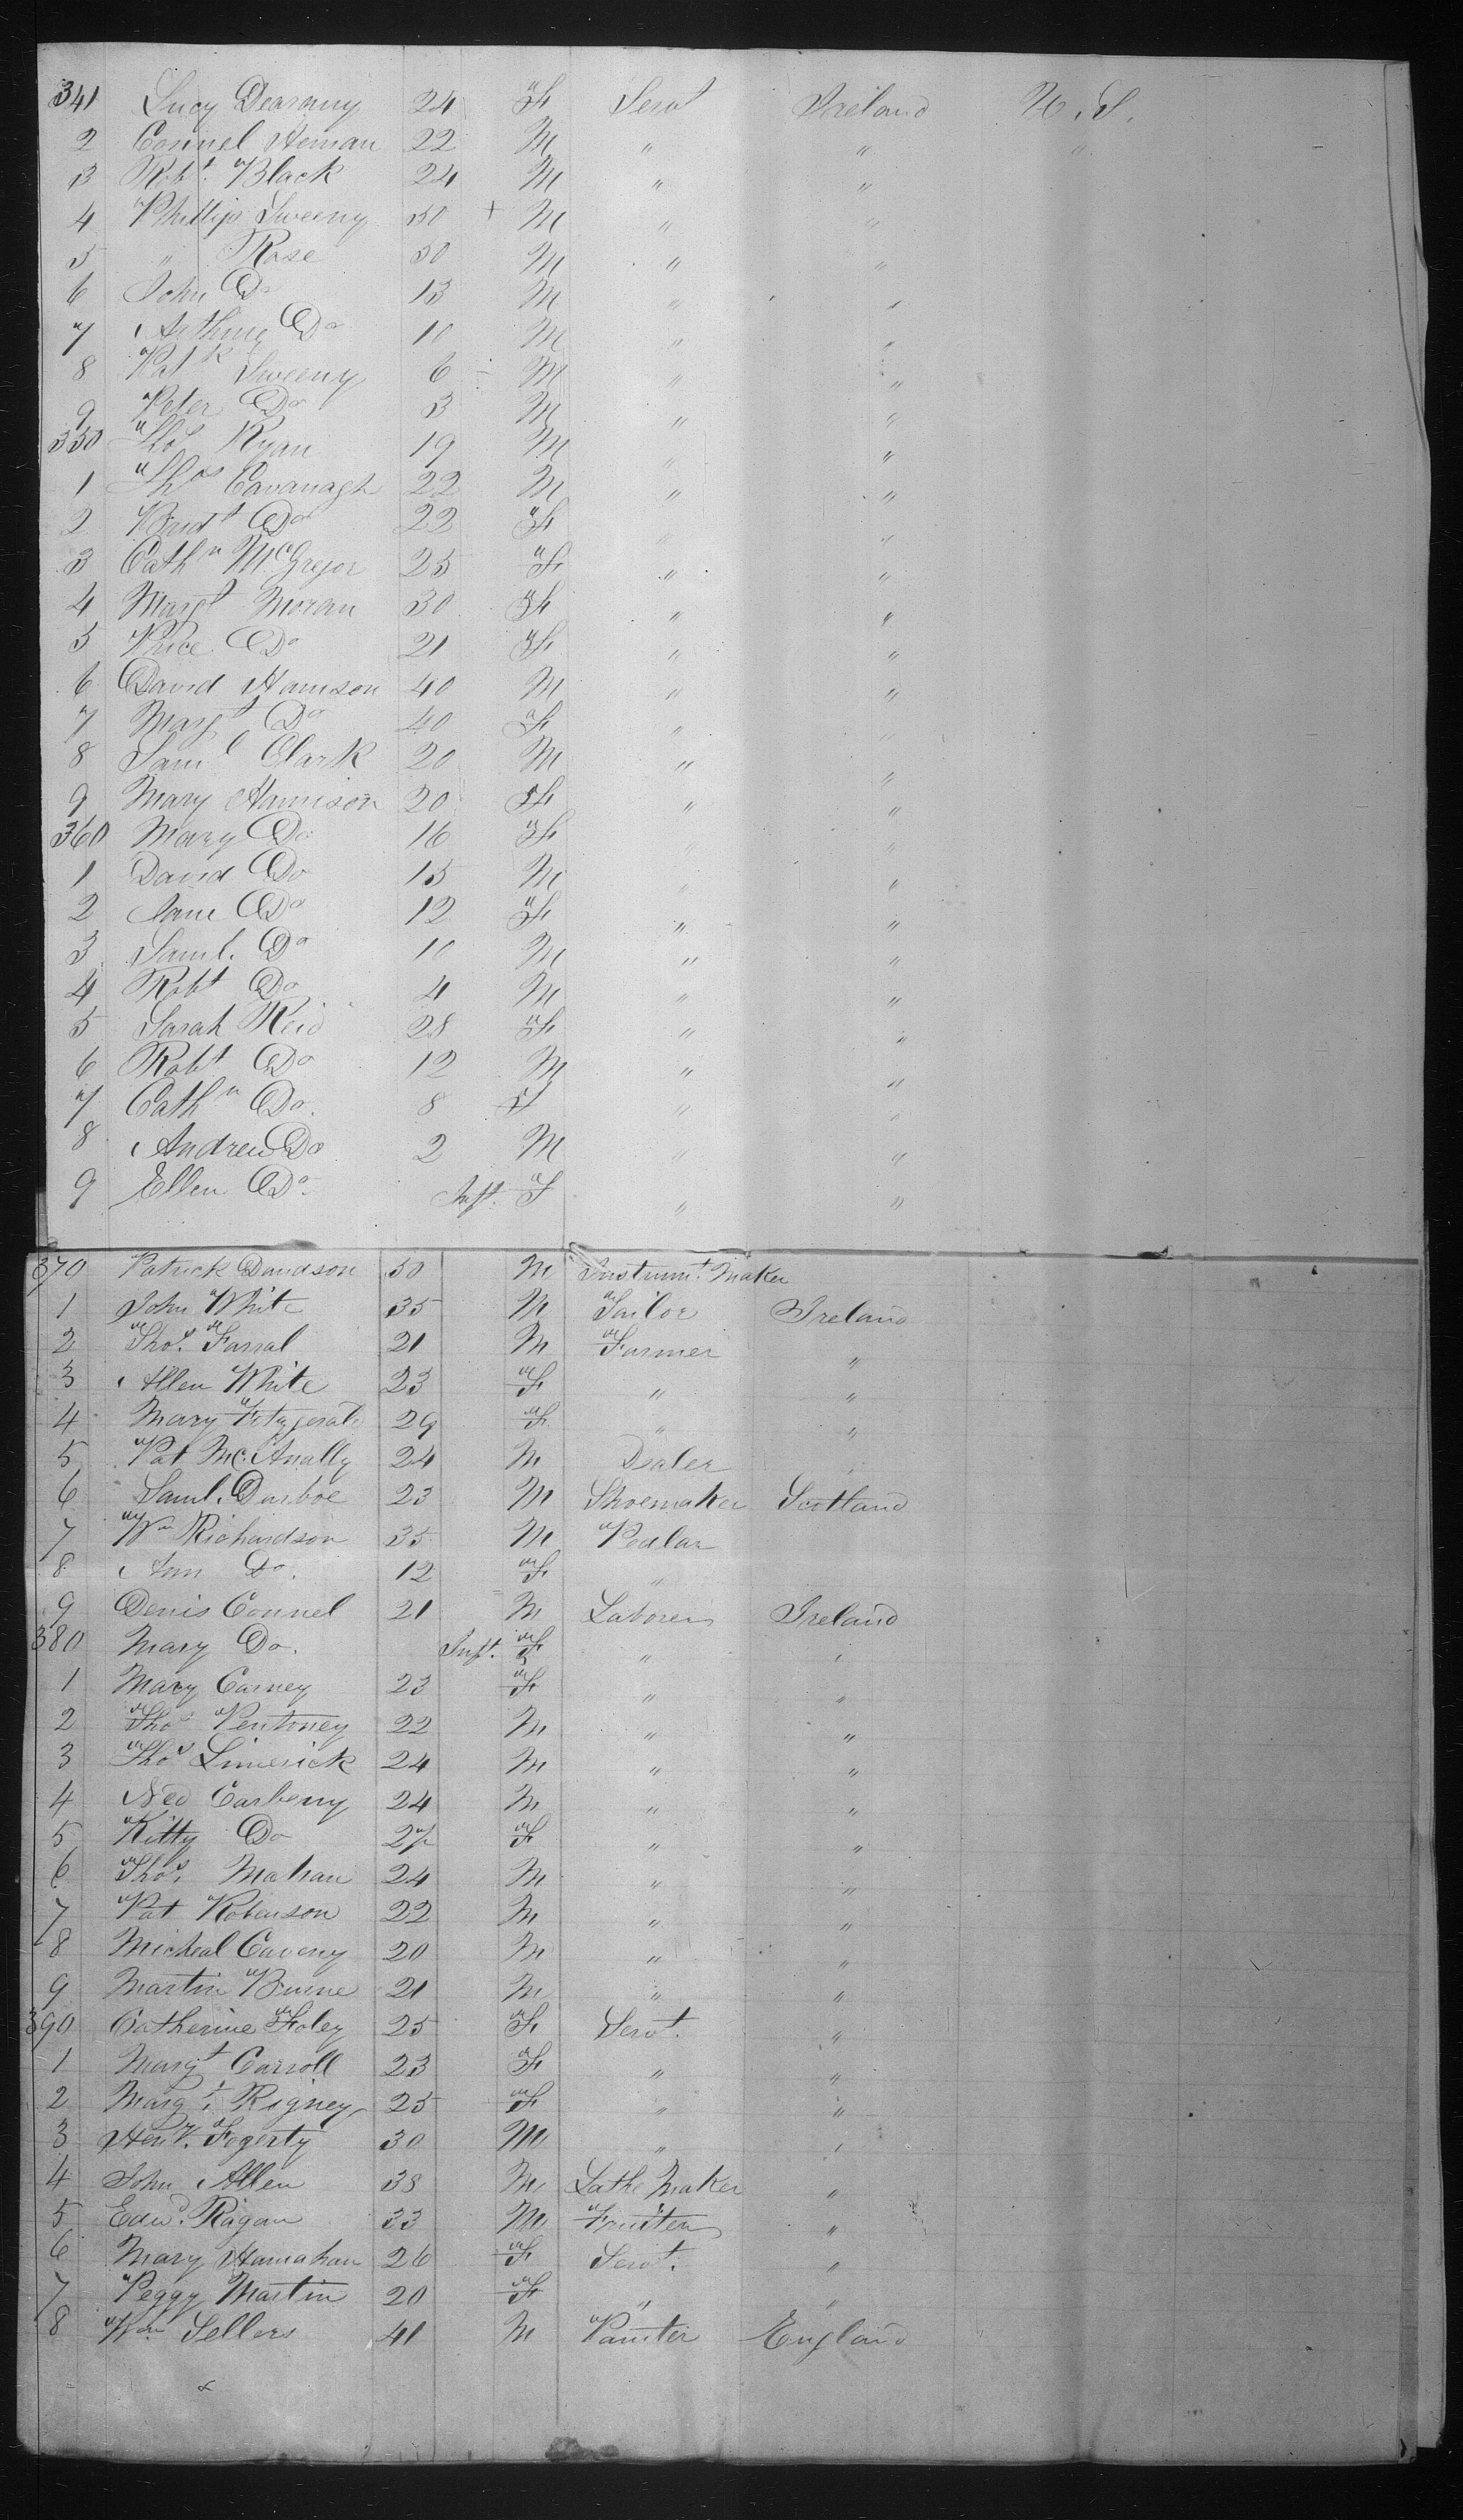 341 Lucy Dearany 24 F Servt Ireland U.S.
2 Connel Heman 22 M " " "
3 Robt. Black 24 M " "
4 Phillips Sweeny 50 + M " "
5 " Rose 50 M " "
6 John Do 13 M " "
7 Arthur Do 10 M " "
8 Patk Sweeny 6 M " "
9 Peter Do 3 M " "
350 Thos Ryan 19 M " "
1 Thos Cavanagh 22 M " "
2 Bridt Do 22 F " "
3 Cathn McGregor 25 F " "
4 Margt Moran 30 F " "
5 Price Do 21 F " "
6 David Hamison 40 M " "
7 Margt Do 40 F " "
8 Saml Clark 20 M " "
9 Mary Hamison 20 F " "
360 Mary Do 16 F " "
1 David Do 15 M " "
2 Jane Do 12 F " "
3 Saml. Do 10 M " "
4 Robt Do 4 M " "
5 Sarah Reid 28 F " "
6 Robt Do 12 M " "
7 Cathn Do. 8 F " "
8 Andrew Do 2 M " "
9 Ellen Do. Inft. F " "
370 Patrick Davidson 50 M Instrumt. Maker
1 John White 35 M Tailor Ireland
2 Thos. Farral 21 M Farmer "
3 Allen White 23 F " "
4 Mary Fitzgerald 29 F " "
5 Pat McAnally 24 M Dealer "
6 Saml. Darboe 23 M Shoemaker Scotland
7 Wm Richardson 35 M Pedlar
8 Ann Do. 12 F "
9 Denis Connel 21 M Laborer Ireland
380 Mary Do. Inft. F " "
1 Mary Carney 23 F " "
2 Thos Pentoney 22 M " "
3 Thos Limerick 24 M " "
4 Ned Carberry 24 M " "
5 Kitty Do 27 F " "
6 Thos. Mahan 24 M " "
7 Pat Robinson 22 M " "
8 Micheal Caveny 20 M " "
9 Martin Burne 21 M " "
390 Catherine Foley 25 F Servt. "
1 Margt Carroll 23 F " "
2 Margt. Rigney 25 F " "
3 Heny. Fogerty 30 M " "
4 John Allen 38 M Lathe Maker "
5 Edwd. Ragan 33 M Fruiterer "
6 Mary Hanahan 26 F Servt. "
7 Peggy Martin 20 F " "
8 Wm Sellers 41 M Painter England